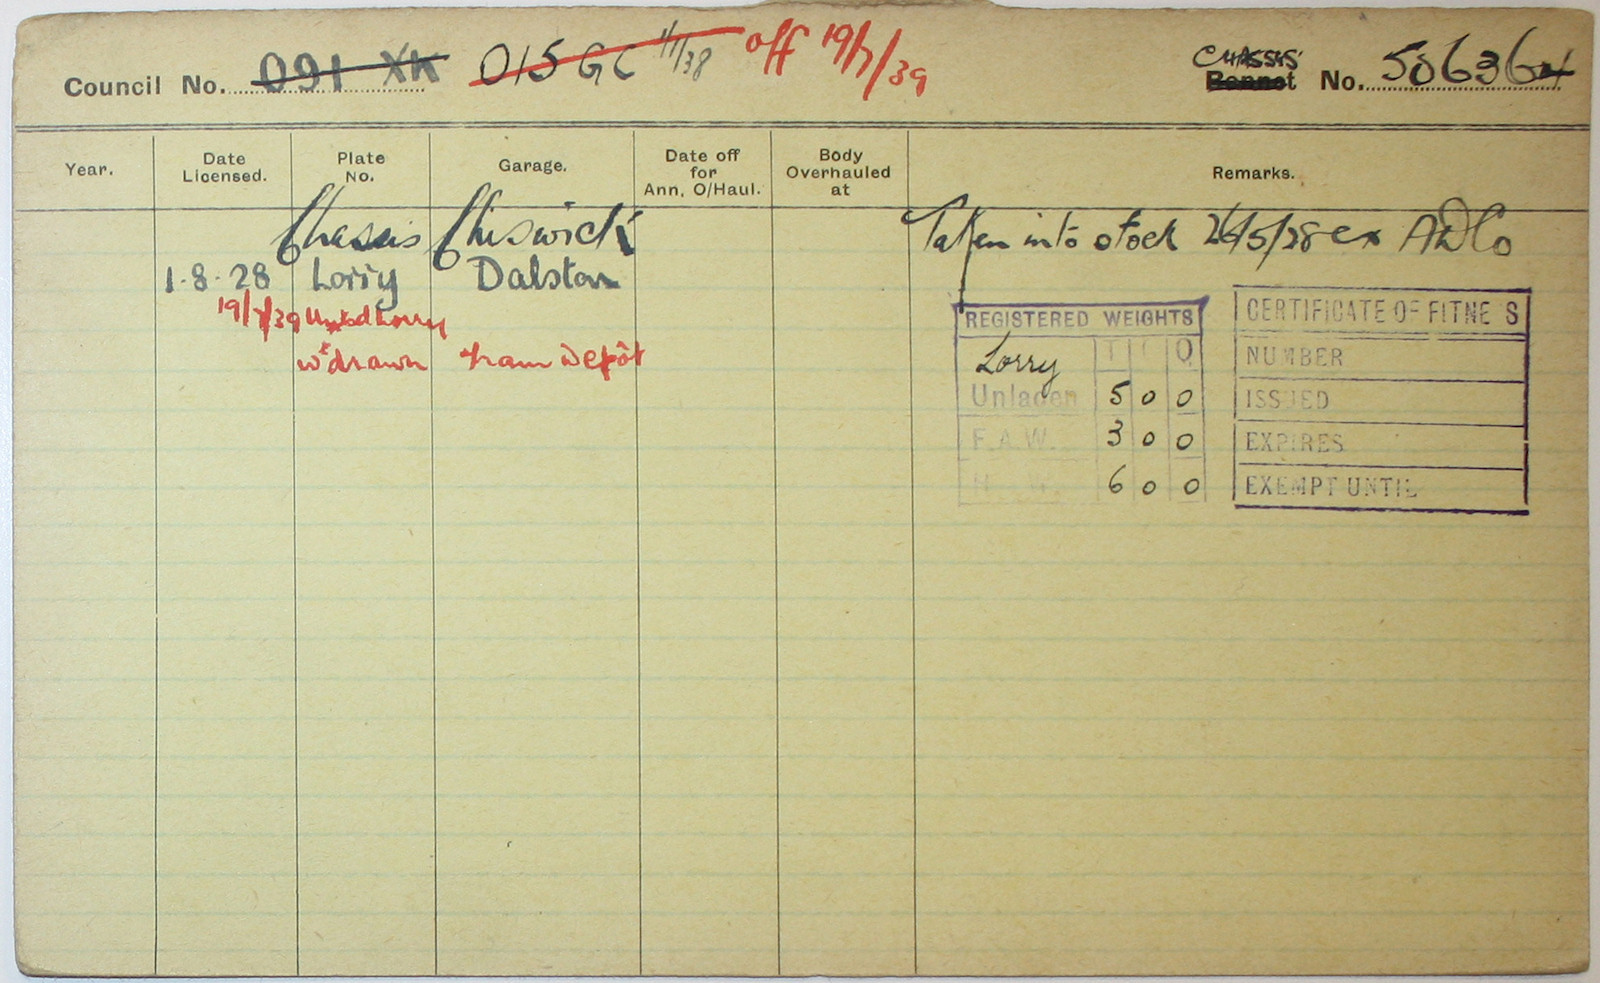 Council No. 091 XK 015 GC 1/1/38 off 19/7/39 CHASSIS Bonnet No. 506364
Year. Date Licensed. Plate No. Garage. Date off for Ann. O/Haul. Body Overhauled at Remarks.
Chassis Chiswick Taken into stock 26/5/28 ex ADCo
1-8-28 Lorry Dalston
19/7/39 Lorry
w'drawn Tram Depôt
REGISTERED WEIGHTS
Lorry T C Q
Unladen 5 0 0
F.A.W. 3 0 0
6 0 0
CERTIFICATE OF FITNE S
NUMBER
ISSUED
EXPIRES
EXEMPT UNTIL